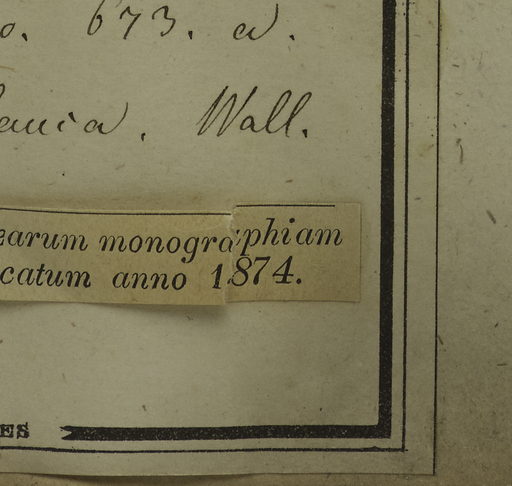 o. 673. a.
auca. Wall.
earum monographiam
catum anno 1874.
ES